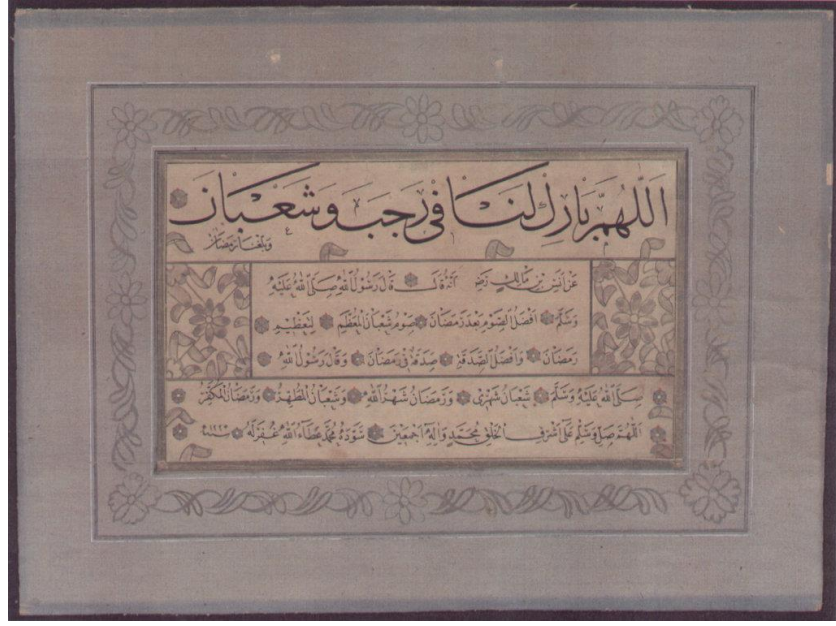 اللهم بارك لنا في رجب وشعبان
وبلغنا رمضان
عن انس بن مالك رضي انه قال قال رسول الله صلى الله عليه
وسلم افضل الصوم بعد رمضان صوم شعبان المعظم لتعظيم
رمضان وافضل الصدقة صدقة في رمضان وقال رسول الله
صلى الله عليه وسلم شعبان شهري ورمضان شهر الله وشعبان المطهر ورمضان المكفر
اللهم صل وسلم على اشرف الخلق محمد واله اجمعين سوده محمد عطاء الله غفر له